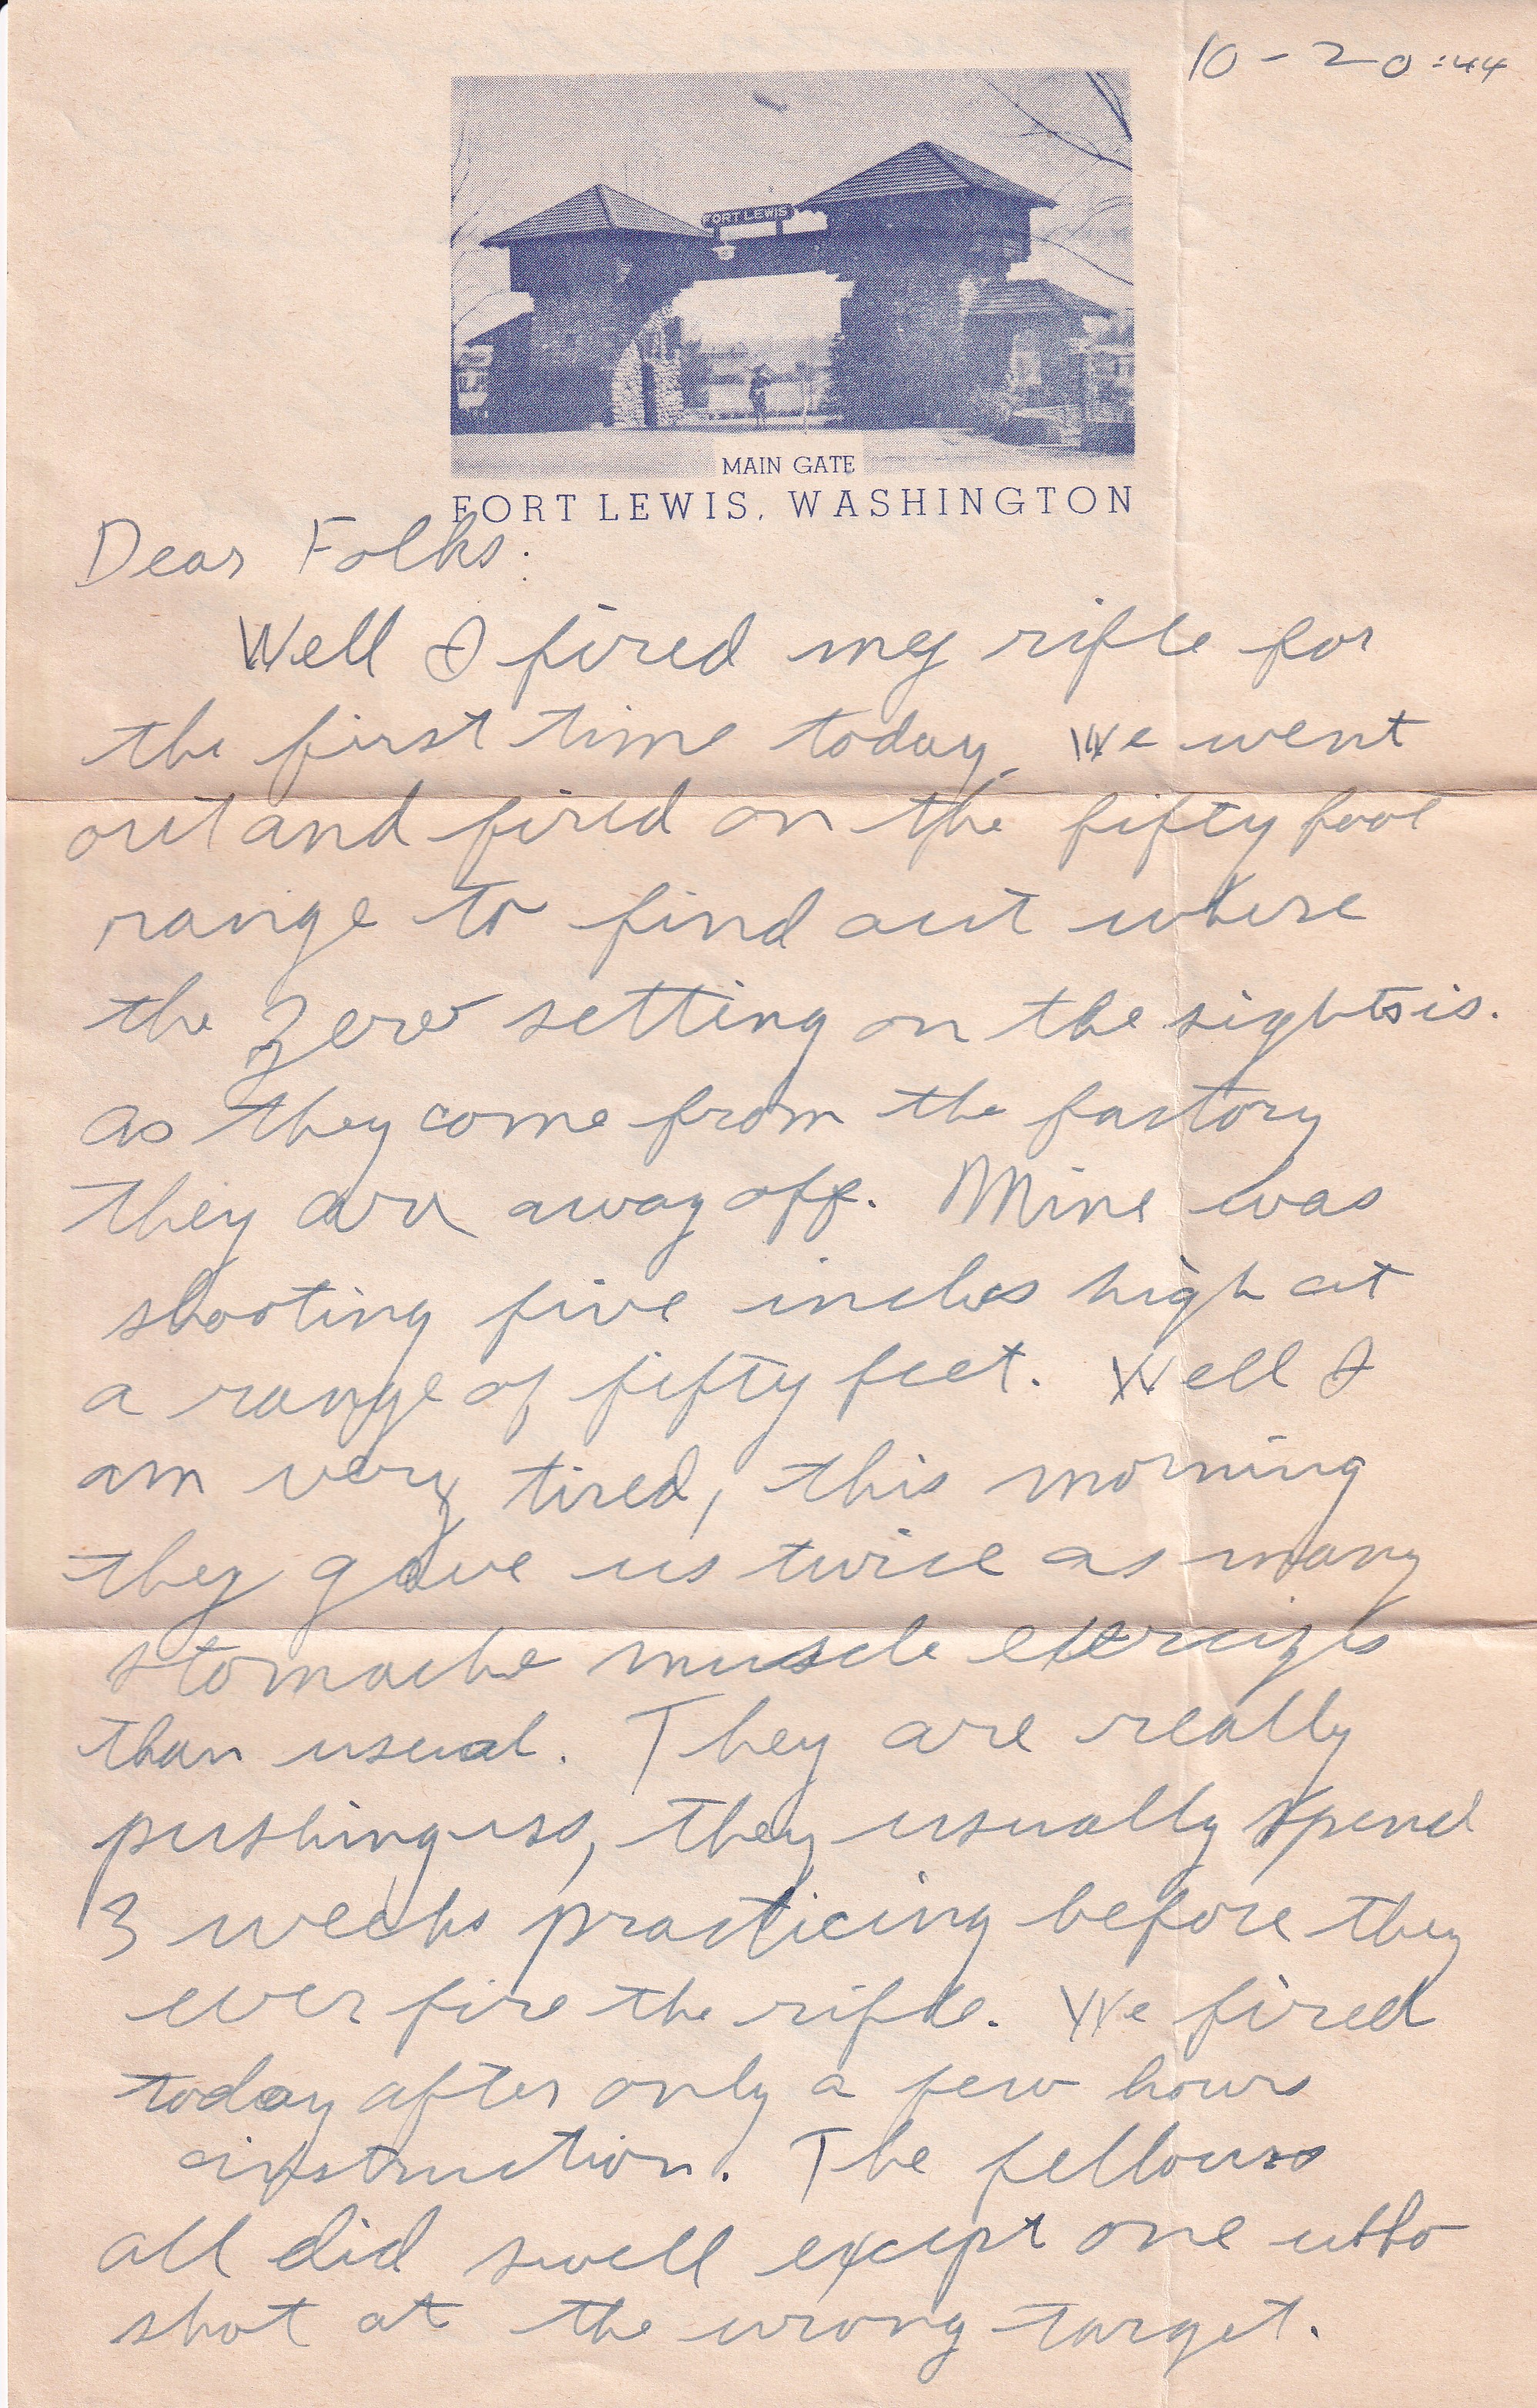 10-20-44
FORT LEWIS
MAIN GATE
FORT LEWIS, WASHINGTON
Dear Folks:
Well I fired my rifle for
the first time today. We went
out and fired on the fifty foot
range to find out where
the zero setting on the sights is.
as they come from the factory
they are away off. Mine was
shooting five inches high at
a range of fifty feet. Well I
am very tired, this morning
they gave us twice as many
stomache muscle exercizes
than usual. They are really
pushing us, they usually spend
3 weeks practicing before they
ever fire the rifle. We fired
today after only a few hours
instruction. The fellows
all did swell except one who
shot at the wrong target.